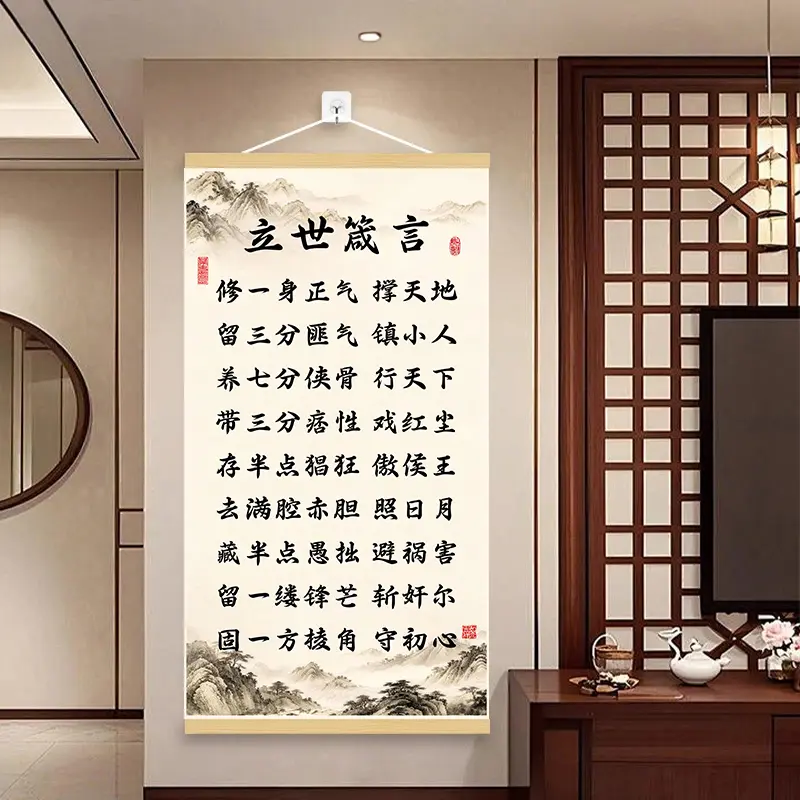 立世箴言
修一身正气 撑天地
留三分匪气 镇小人
养七分侠骨 行天下
带三分痞性 戏红尘
存半点猖狂 傲侯王
去满腔赤胆 照日月
藏半点愚拙 避祸害
留一缕锋芒 斩奸尔
固一方棱角 守初心